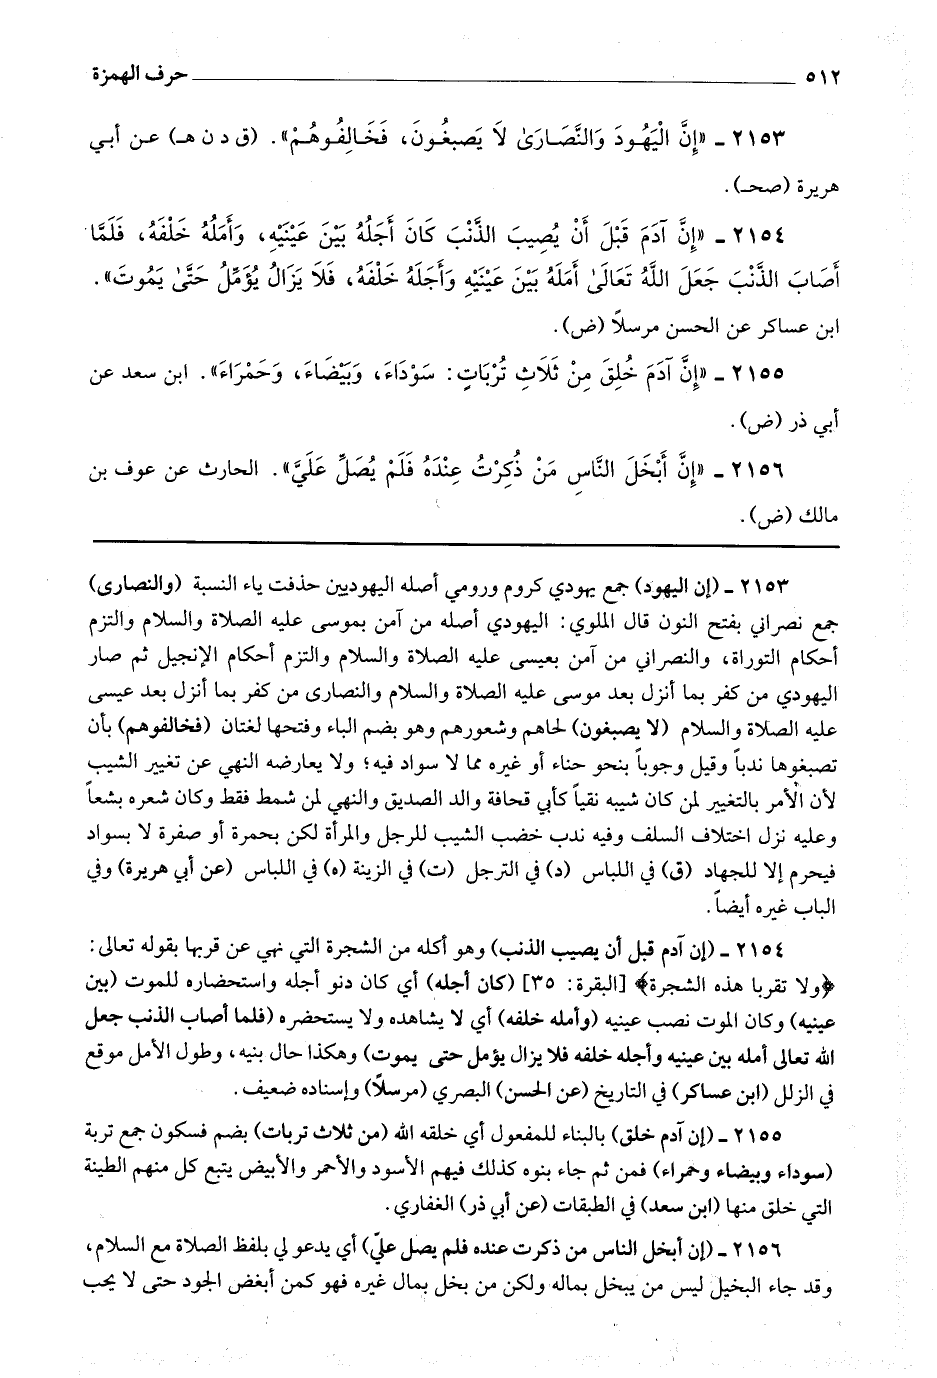 ٥١٢ حرف الهمزة
٢١٥٣ ـ «إِنَّ الْيَهُودَ وَالنَّصَارَىٰ لَا يَصبغُونَ، فَخَالِفُوهُمْ». (ق د ن هـ) عن أبي
هريرة (صحـ).
٢١٥٤ ـ «إِنَّ آدَمَ قَبْلَ أَنْ يُصِيبَ الذَّنْبَ كَانَ أَجَلُهُ بَيْنَ عَيْنَيْهِ، وَأَمَلُهُ خَلْفَهُ، فَلَمَّا
أَصَابَ الذَّنْبَ جَعَلَ اللَّهُ تَعَالَىٰ أَمَلَهُ بَيْنَ عَيْنَيْهِ وَأَجَلَهُ خَلْفَهُ، فَلَا يَزَالُ يُؤَمِّلُ حَتَّىٰ يَمُوتَ».
ابن عساكر عن الحسن مرسلاً (ض).
٢١٥٥ ـ «إِنَّ آدَمَ خُلِقَ مِنْ ثَلَاثِ تُرْبَاتٍ: سَوْدَاءَ، وَبَيْضَاءَ، وَحَمْرَاءَ». ابن سعد عن
أبي ذر (ض).
٢١٥٦ ـ «إِنَّ أَبْخَلَ النَّاسِ مَنْ ذُكِرْتُ عِنْدَهُ فَلَمْ يُصَلِّ عَلَيَّ». الحارث عن عوف بن
مالك (ض).
٢١٥٣ ـ (إن اليهود) جمع يهودي كروم ورومي أصله اليهوديين حذفت ياء النسبة (والنصارى)
جمع نصراني بفتح النون قال الملوي: اليهودي أصله من آمن بموسى عليه الصلاة والسلام والتزم
أحكام التوراة، والنصراني من آمن بعيسى عليه الصلاة والسلام والتزم أحكام الإنجيل ثم صار
اليهودي من كفر بما أنزل بعد موسى عليه الصلاة والسلام والنصارى من كفر بما أنزل بعد عيسى
عليه الصلاة والسلام (لا يصبغون) لحاهم وشعورهم وهو بضم الباء وفتحها لغتان (فخالفوهم) بأن
تصبغوها ندباً وقيل وجوباً بنحو حناء أو غيره مما لا سواد فيه؛ ولا يعارضه النهي عن تغيير الشيب
لأن الأمر بالتغيير لمن كان شيبه نقياً كأبي قحافة والد الصديق والنهي لمن شمط فقط وكان شعره بشعاً
وعليه نزل اختلاف السلف وفيه ندب خضب الشيب للرجل والمرأة لكن بحمرة أو صفرة لا بسواد
فيحرم إلا للجهاد (ق) في اللباس (د) في الترجل (ت) في الزينة (ه) في اللباس (عن أبي هريرة) وفي
الباب غيره أيضاً.
٢١٥٤ ـ (إن آدم قبل أن يصيب الذنب) وهو أكله من الشجرة التي نهي عن قربها بقوله تعالى:
﴿ولا تقربا هذه الشجرة﴾ [البقرة: ٣٥] (كان أجله) أي كان دنو أجله واستحضاره للموت (بين
عينيه) وكان الموت نصب عينيه (وأمله خلفه) أي لا يشاهده ولا يستحضره (فلما أصاب الذنب جعل
الله تعالى أمله بين عينيه وأجله خلفه فلا يزال يؤمل حتى يموت) وهكذا حال بنيه، وطول الأمل موقع
في الزلل (ابن عساكر) في التاريخ (عن الحسن) البصري (مرسلاً) وإسناده ضعيف.
٢١٥٥ ـ (إن آدم خلق) بالبناء للمفعول أي خلقه الله (من ثلاث تربات) بضم فسكون جمع تربة
(سوداء وبيضاء وحمراء) فمن ثم جاء بنوه كذلك فيهم الأسود والأحمر والأبيض يتبع كل منهم الطينة
التي خلق منها (ابن سعد) في الطبقات (عن أبي ذر) الغفاري.
٢١٥٦ ـ (إن أبخل الناس من ذكرت عنده فلم يصل عليّ) أي يدعو لي بلفظ الصلاة مع السلام،
وقد جاء البخيل ليس من يبخل بماله ولكن من بخل بمال غيره فهو كمن أبغض الجود حتى لا يحب